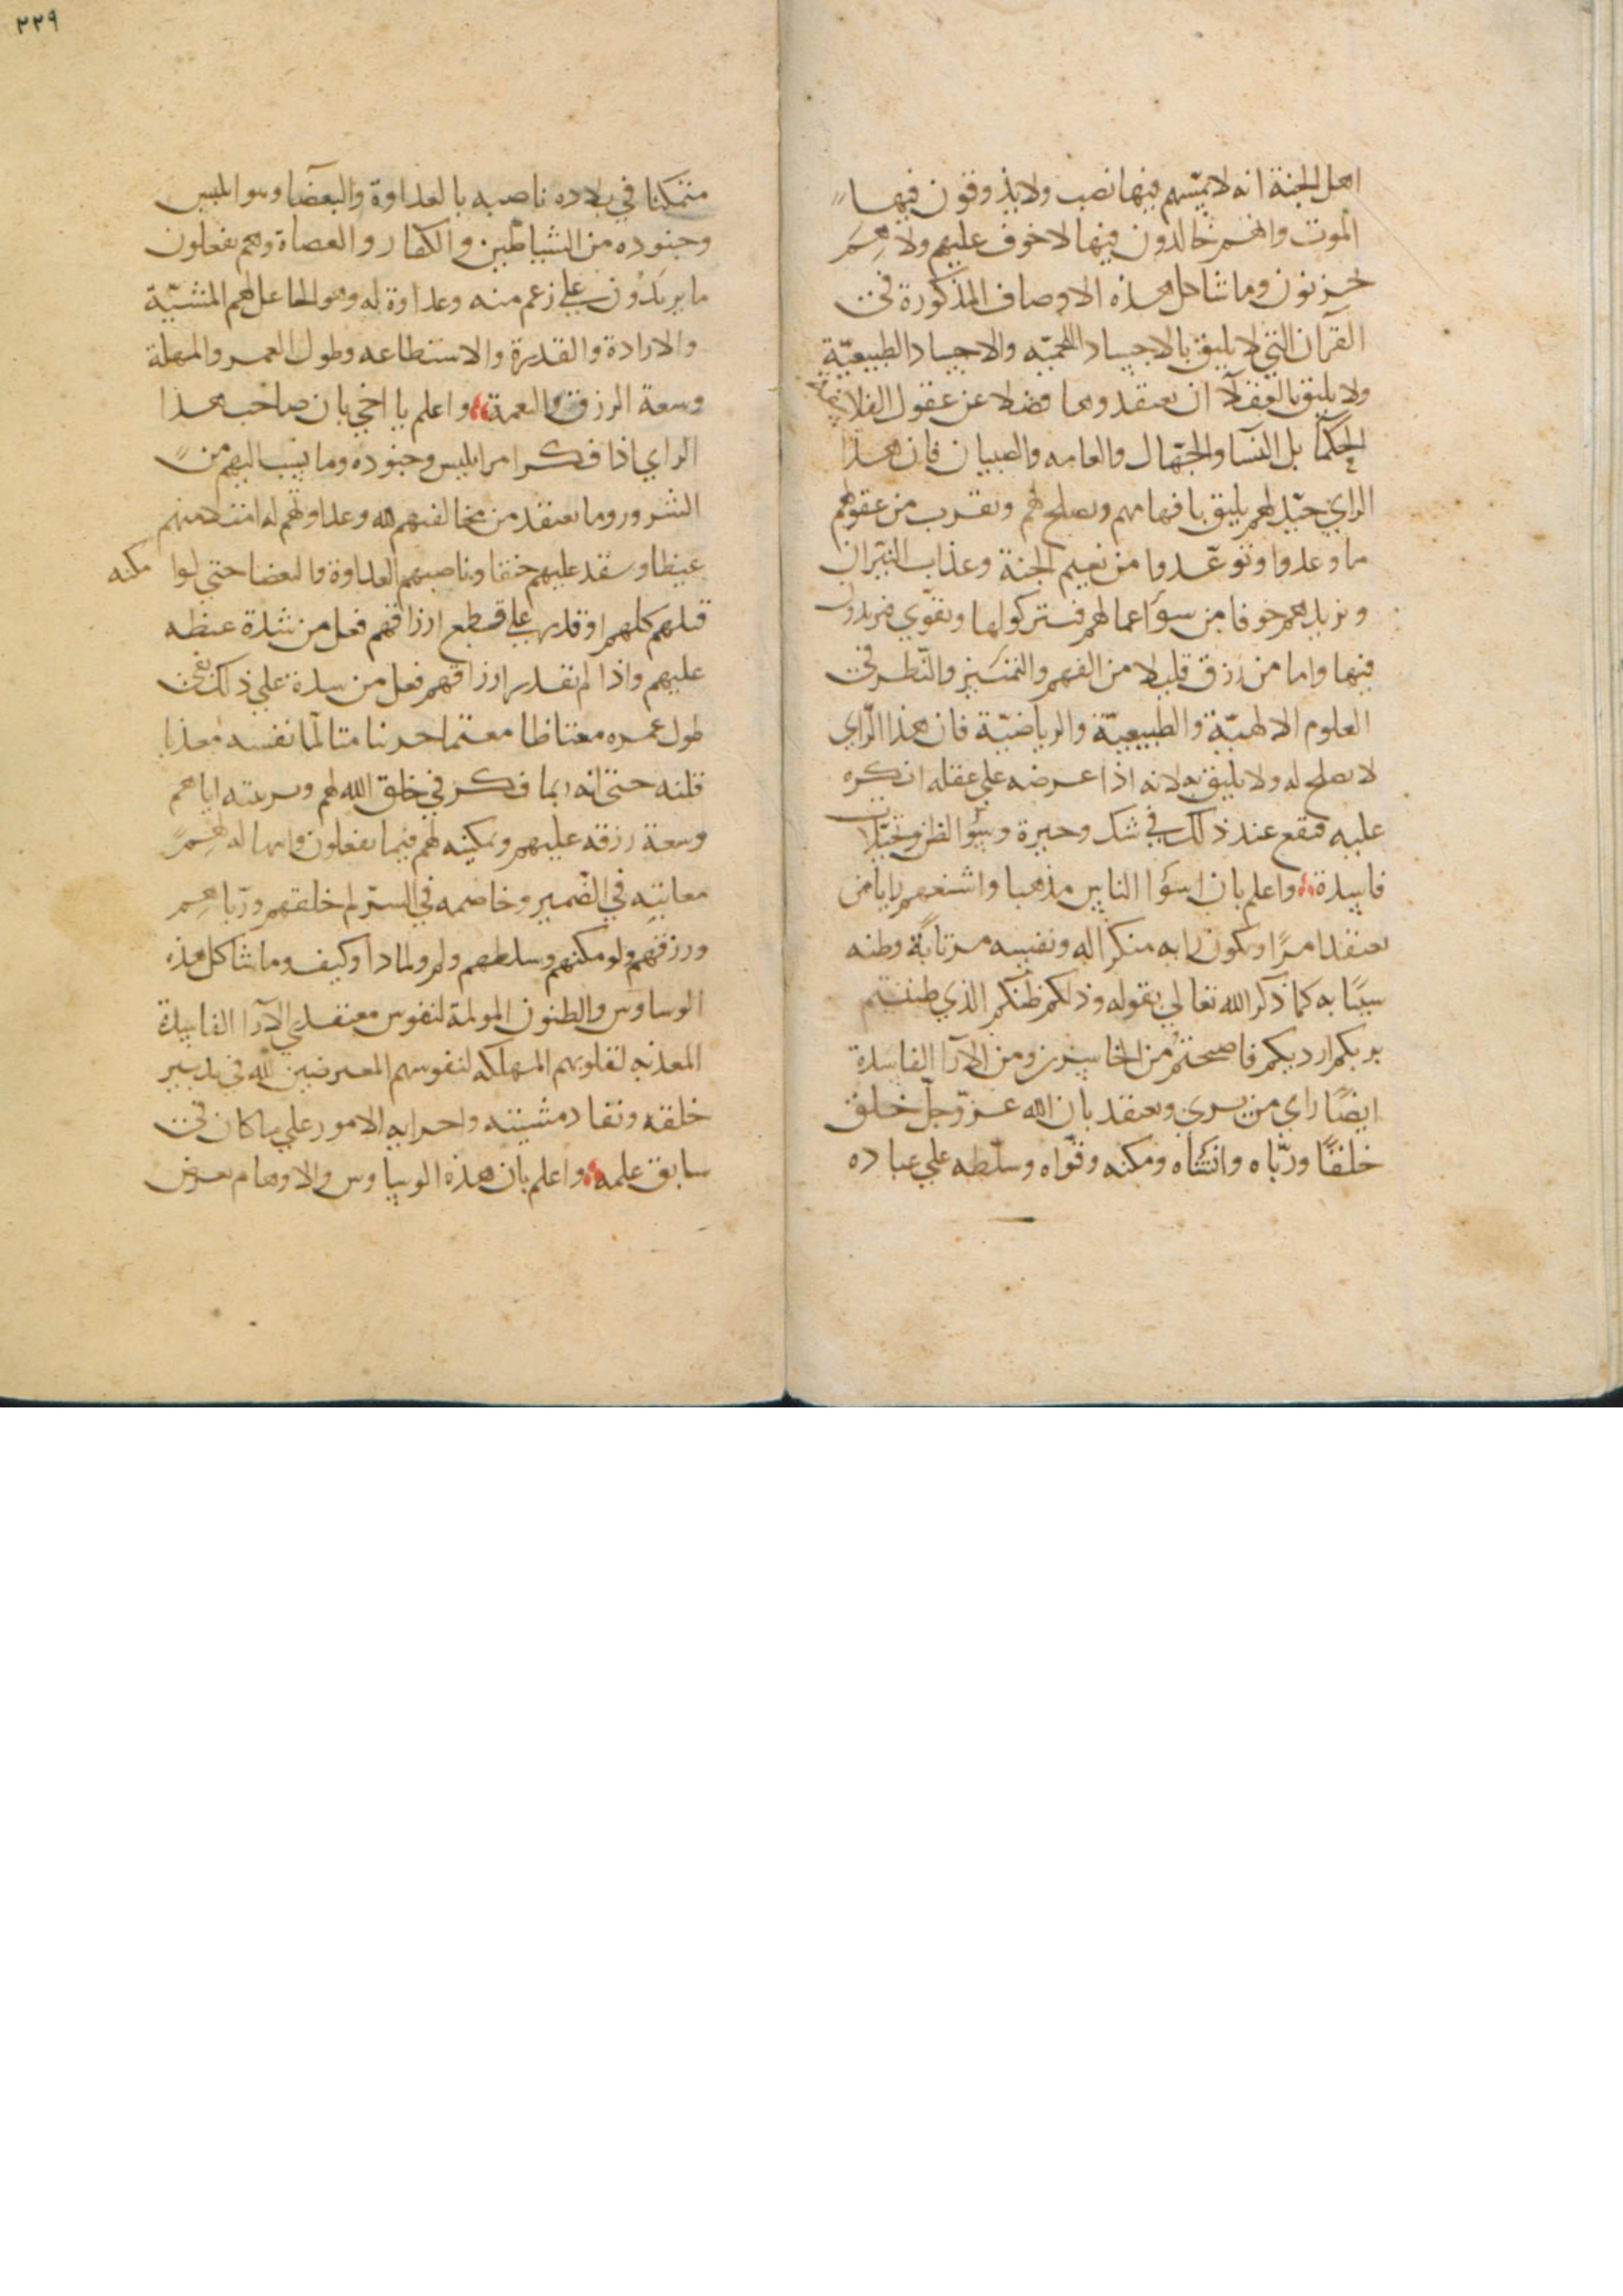 اهل الجنة انه لا يمسهم فيها نصب ولا يذوقون فيها
الموت وانهم خالدون فيها لا خوف عليهم ولا هم
يحزنون وما شاكل هذه الاوصاف المذكورة في
القرآن التي لا يليق بالاجساد اللحميّه والاجساد الطبيعيّة
ولا يليق بالعقلآ ان يعتقدوها فضلا عن عقول الفلاسفة
الحكمآ بل النسآ والجهّال والعامه والصبيان فان هذا
الراي جيّد لهم يليق بافهامهم ويصلح لهم ويقرب من عقولهم
ما وعدوا وتوعّدوا من نعيم الجنة وعذاب النيران
ويزيدهم خوفا من سوء اعمالهم فيتركولها ويقوّي
فيها واما من رزق قليلا من الفهم والتمييز والنّظر في
العلوم الالهيّة والطبيعيّة والرياضيّة فان هذا الرّاي
لا يصلح له ولا يليق به لانه اذا عرضه علي عقله انكره
عليه فيقع عند ذلك في شك وحيرة وسؤ الظن وتخيّلات
فاسدة واعلم بان اسؤا الناس مذهبا واشنعهم رايا من
يعتقد امرًا ويكون رابه منكرا له ونفسه مرتابة وظنه
سيًا به كما ذكر الله تعالي بقوله وذلكم ظنكم الذي ظننتم
بربكم ارديكم فاصبحتم من الخاسرين ومن الارآ الفاسدة
ايضًا راي من يري ويعتقد بان الله عزّ وجلّ خلق
خلقًا وربّاه وانشاه ومكنه وقوّاه وسلّطه علي عباده
٢٢٩
متمكنا في بلاده ناصبه بالعداوة والبغضا وهو ابليس
وجنوده من الشياطين والكفار والعصاة وهم يفعلون
ما يريدون علي زعم منه وعداوة له وهو الجاعل لهم المشيّة
والارادة والقدرة والاستطاعه وطول العمر والمهلة
وسعة الرزق والنعمة واعلم يا اخي بان صاحب هذا
الراي اذا فكر امر ابليس وجنوده وما ينسب اليهم من
الشرور وما يعتقد من مخالفتهم لله وعداوتهم له امتلا منهم
غيظا وحقد عليهم حنقا وناصبهم العداوة والبغضا حتي لو امكنه
قتلهم كلهم او قدر علي قطع ارزاقهم فعل من شدة غيظه
عليهم واذا لم يقدر ارزاقهم فعل من شدة علي ذلك بقي
طول عمره مغتاظا مغتما حزينا متالّما نفسه معذبا
قلبه حتي انه ربما فكر في خلق الله لهم وتربيته اياهم
وسعة رزقه عليهم وتمكينه لهم فيما يفعلون وامهاله لهم
معاتبه في الضّمير وخاصمه في السرّ لم خلقهم وربّاهم
ورزقهم ولو مكنهم وسلطهم ولم ولماذا وكيف وما شاكل هذه
الوساوس والظنون المولمة لنفوس معتقدي الارآ الفاسدة
المعذبه لقلوبهم المهلكه لنفوسهم المعرضين لله في تدبير
خلقه ونفاد مشيته واجرايه الامور علي ما كان في
سابق علمه واعلم بان هذه الوساوس والاوهام تعرض